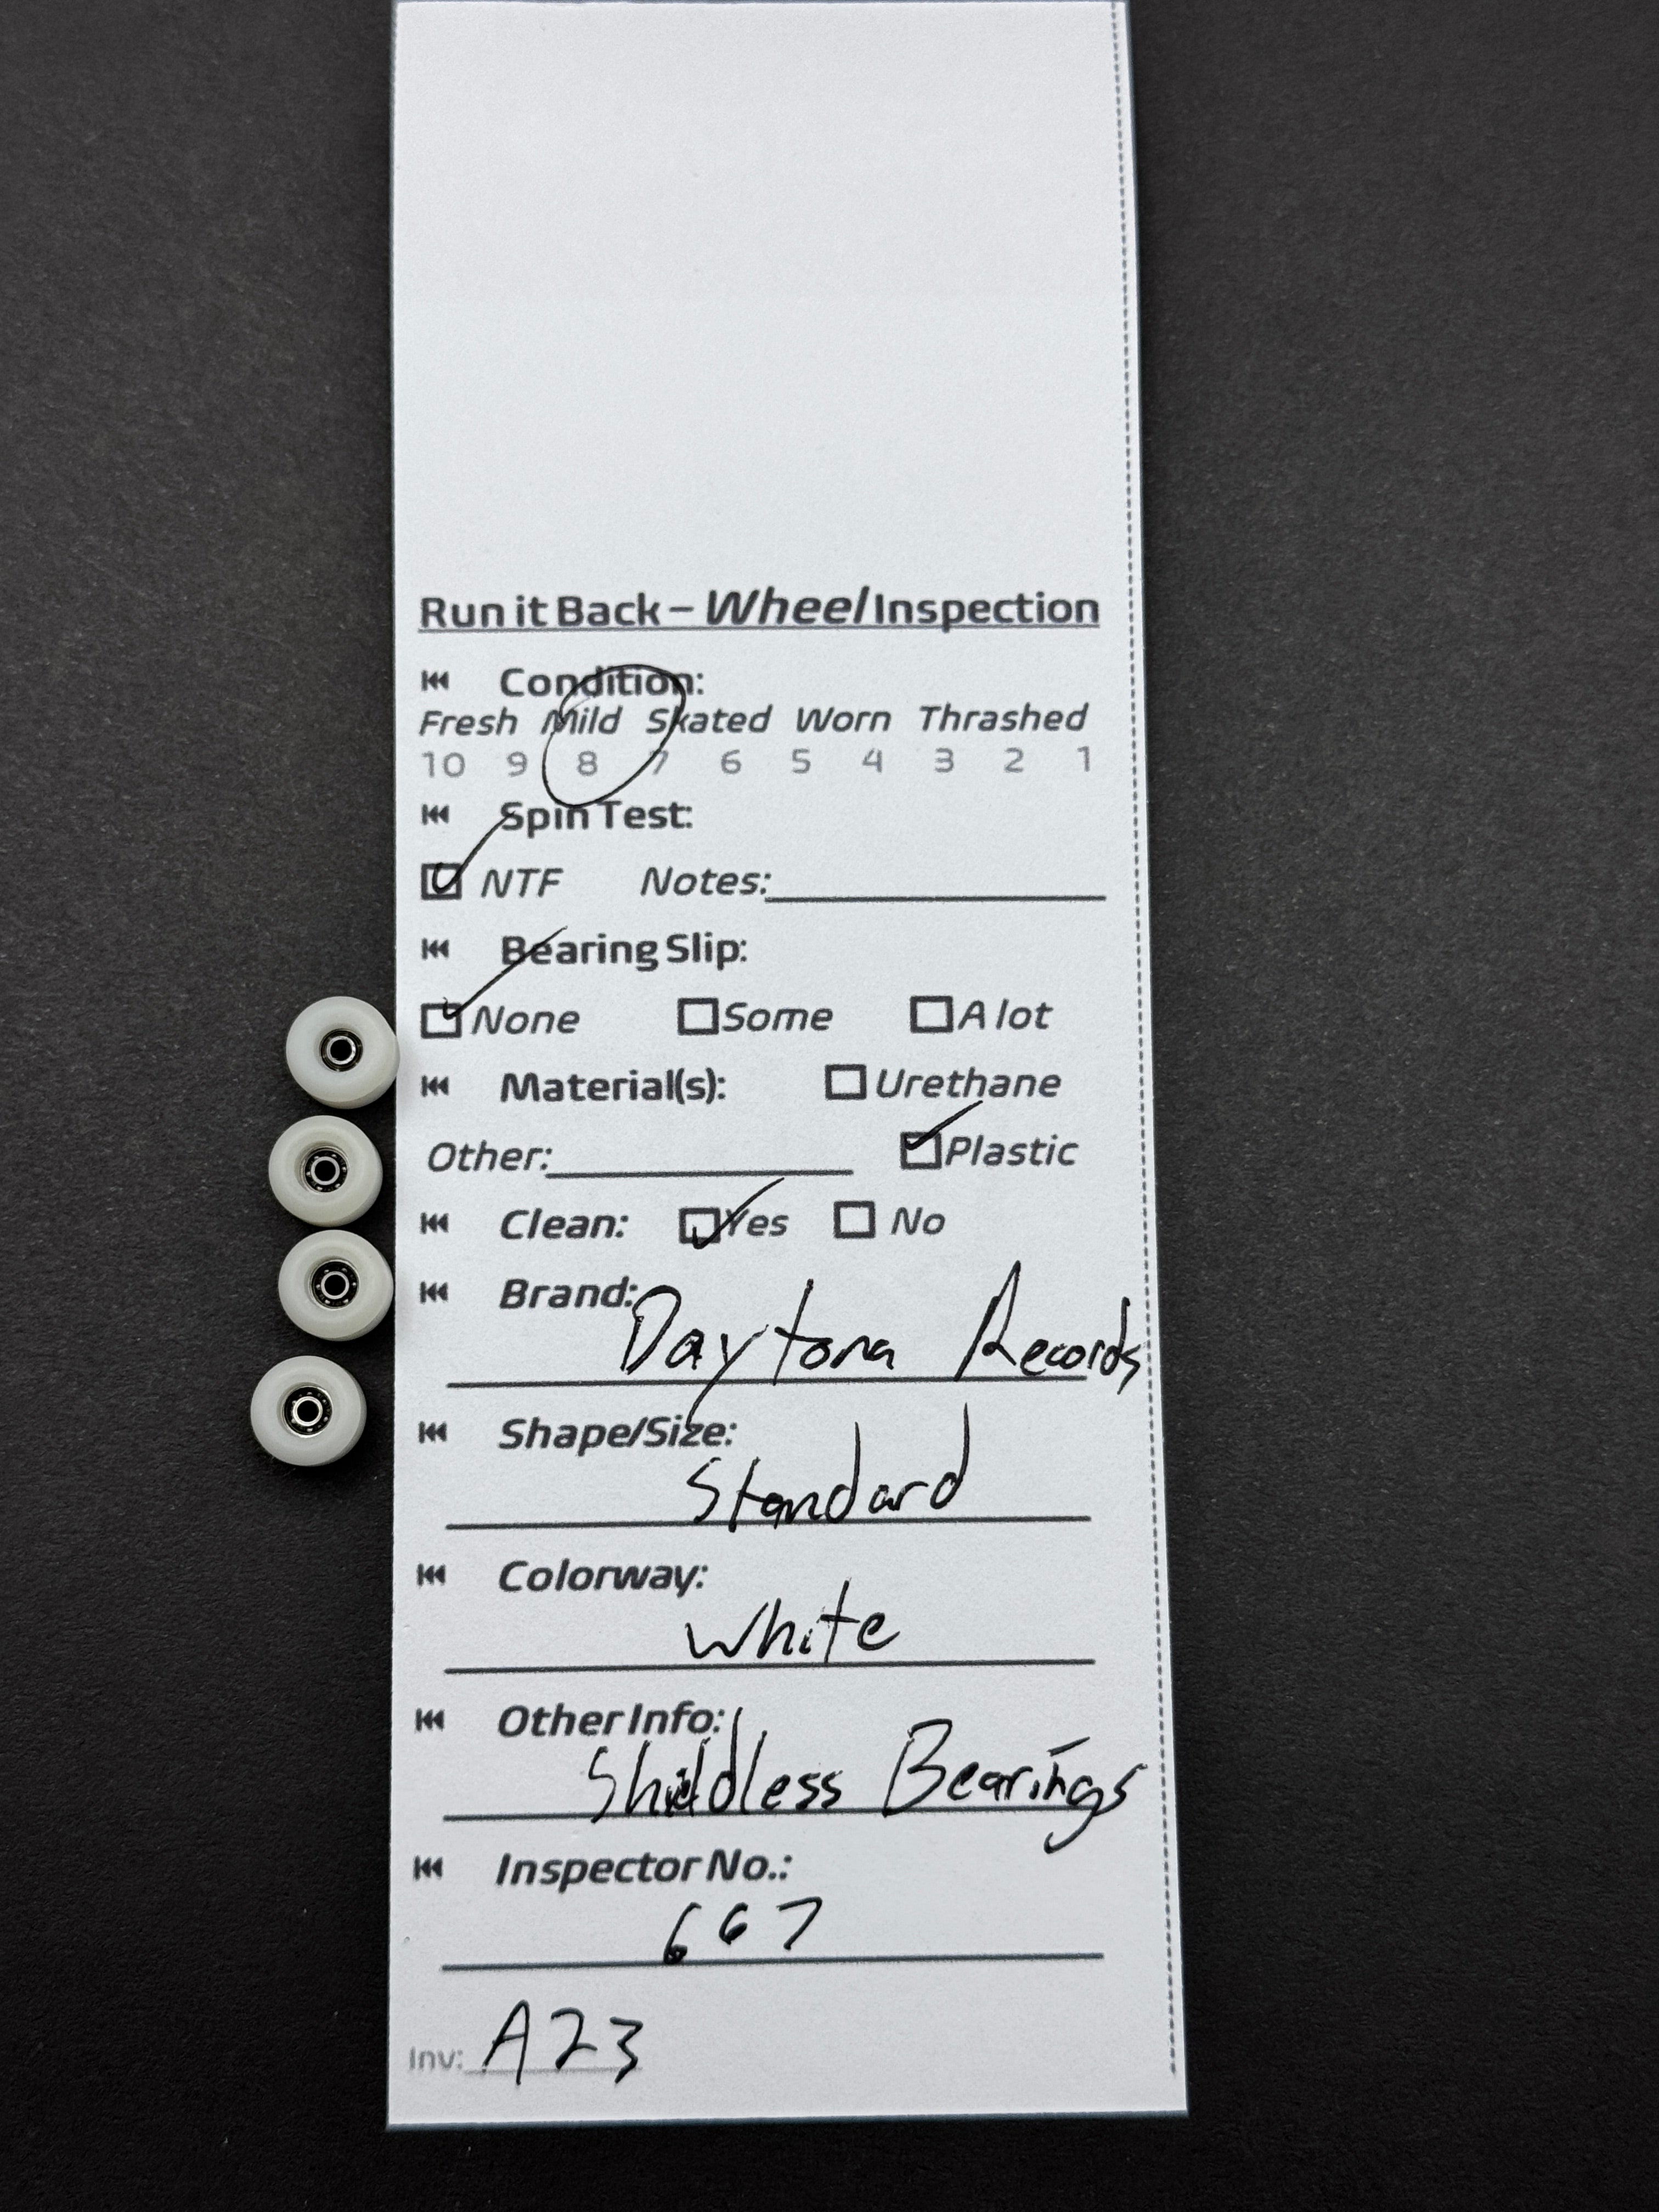 Run it Back – Wheel Inspection
Condition:
Fresh Mild Skated Worn Thrashed
10 9 8 7 6 5 4 3 2 1
Spin Test:
NTF Notes:
Bearing Slip:
None Some A lot
Material(s): Urethane
Other: Plastic
Clean: Yes No
Brand:
Daytona Records
Shape/Size:
Standard
Colorway:
White
Other Info:
Shieldless Bearings
Inspector No.:
667
Inv: A23